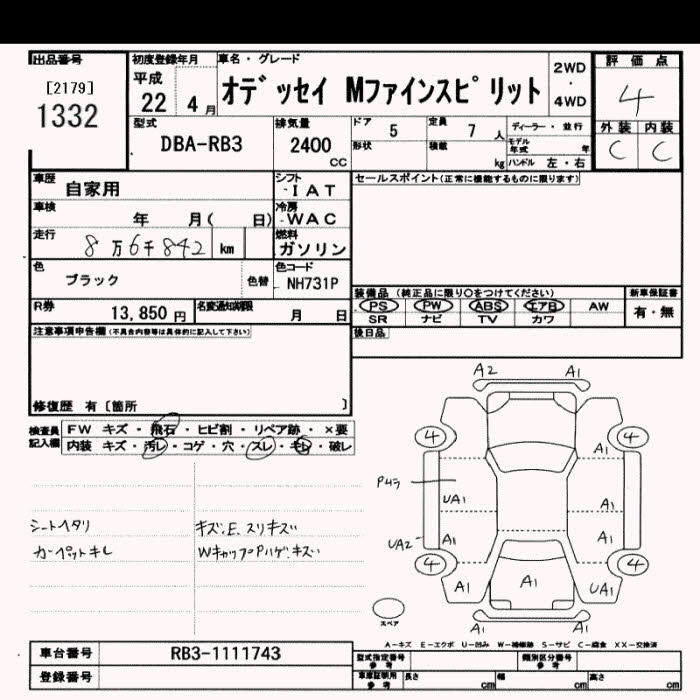 出品番号
[2179]
1332
初度登録年月
平成
22 4 月
車名・グレード
オデッセイ Mファインスピリット
2WD
・
4WD
評価点
4
外装 内装
C C
型式
DBA-RB3
排気量
2400
CC
ドア 5
定員 7 人
形状
積載 kg
ディーラー・並行
モデル年式 年
ハンドル 左・右
車歴
自家用
シフト
IAT
セールスポイント(正常に機能するものに限ります)
車検
年 月( 日)
冷房
WAC
走行
8万6千842 km
燃料
ガソリン
色
ブラック
色替
色コード
NH731P
R券
13,850 円
名変通知期限
月 日
装備品 (純正品に限り○をつけてください)
PS PW ABS エアB AW
SR ナビ TV カワ
新車保証書
有・無
注意事項申告欄(不具合内容等は具体的に記入して下さい)
後日品
修復歴 有〔箇所 〕
検査員
記入欄
FW キズ・飛石・ヒビ割・リペア跡・×要
内装 キズ・汚レ・コゲ・穴・スレ・キレ・破レ
シートヘタリ
カーペットキレ
キズ.E.スリキズ
WキャップPハゲ.キズ
A2 A1
4 4
A1
Pムラ
UA1 A1
UA2 A1 A1
4 4
A1 A1 UA1
スペア
A1 A1
A-キズ E-エクボ U-凹み W-補修跡 S-サビ C-腐食 XX-交換済
車台番号
RB3-1111743
登録番号
型式指定番号
参考
類別区分番号
参考
車庫証明用
参考
長さ cm
幅 cm
高さ cm